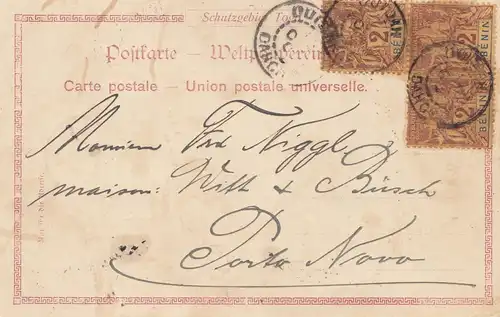 Schutzgebiet To
OUIDAH
OUIDAH
Postkarte — Weltpostverein
Carte postale — Union postale universelle.
2
BENIN
2
BENIN
2
Monsieur Frd Niggl
maison: Witt & Büsch
Porto Novo